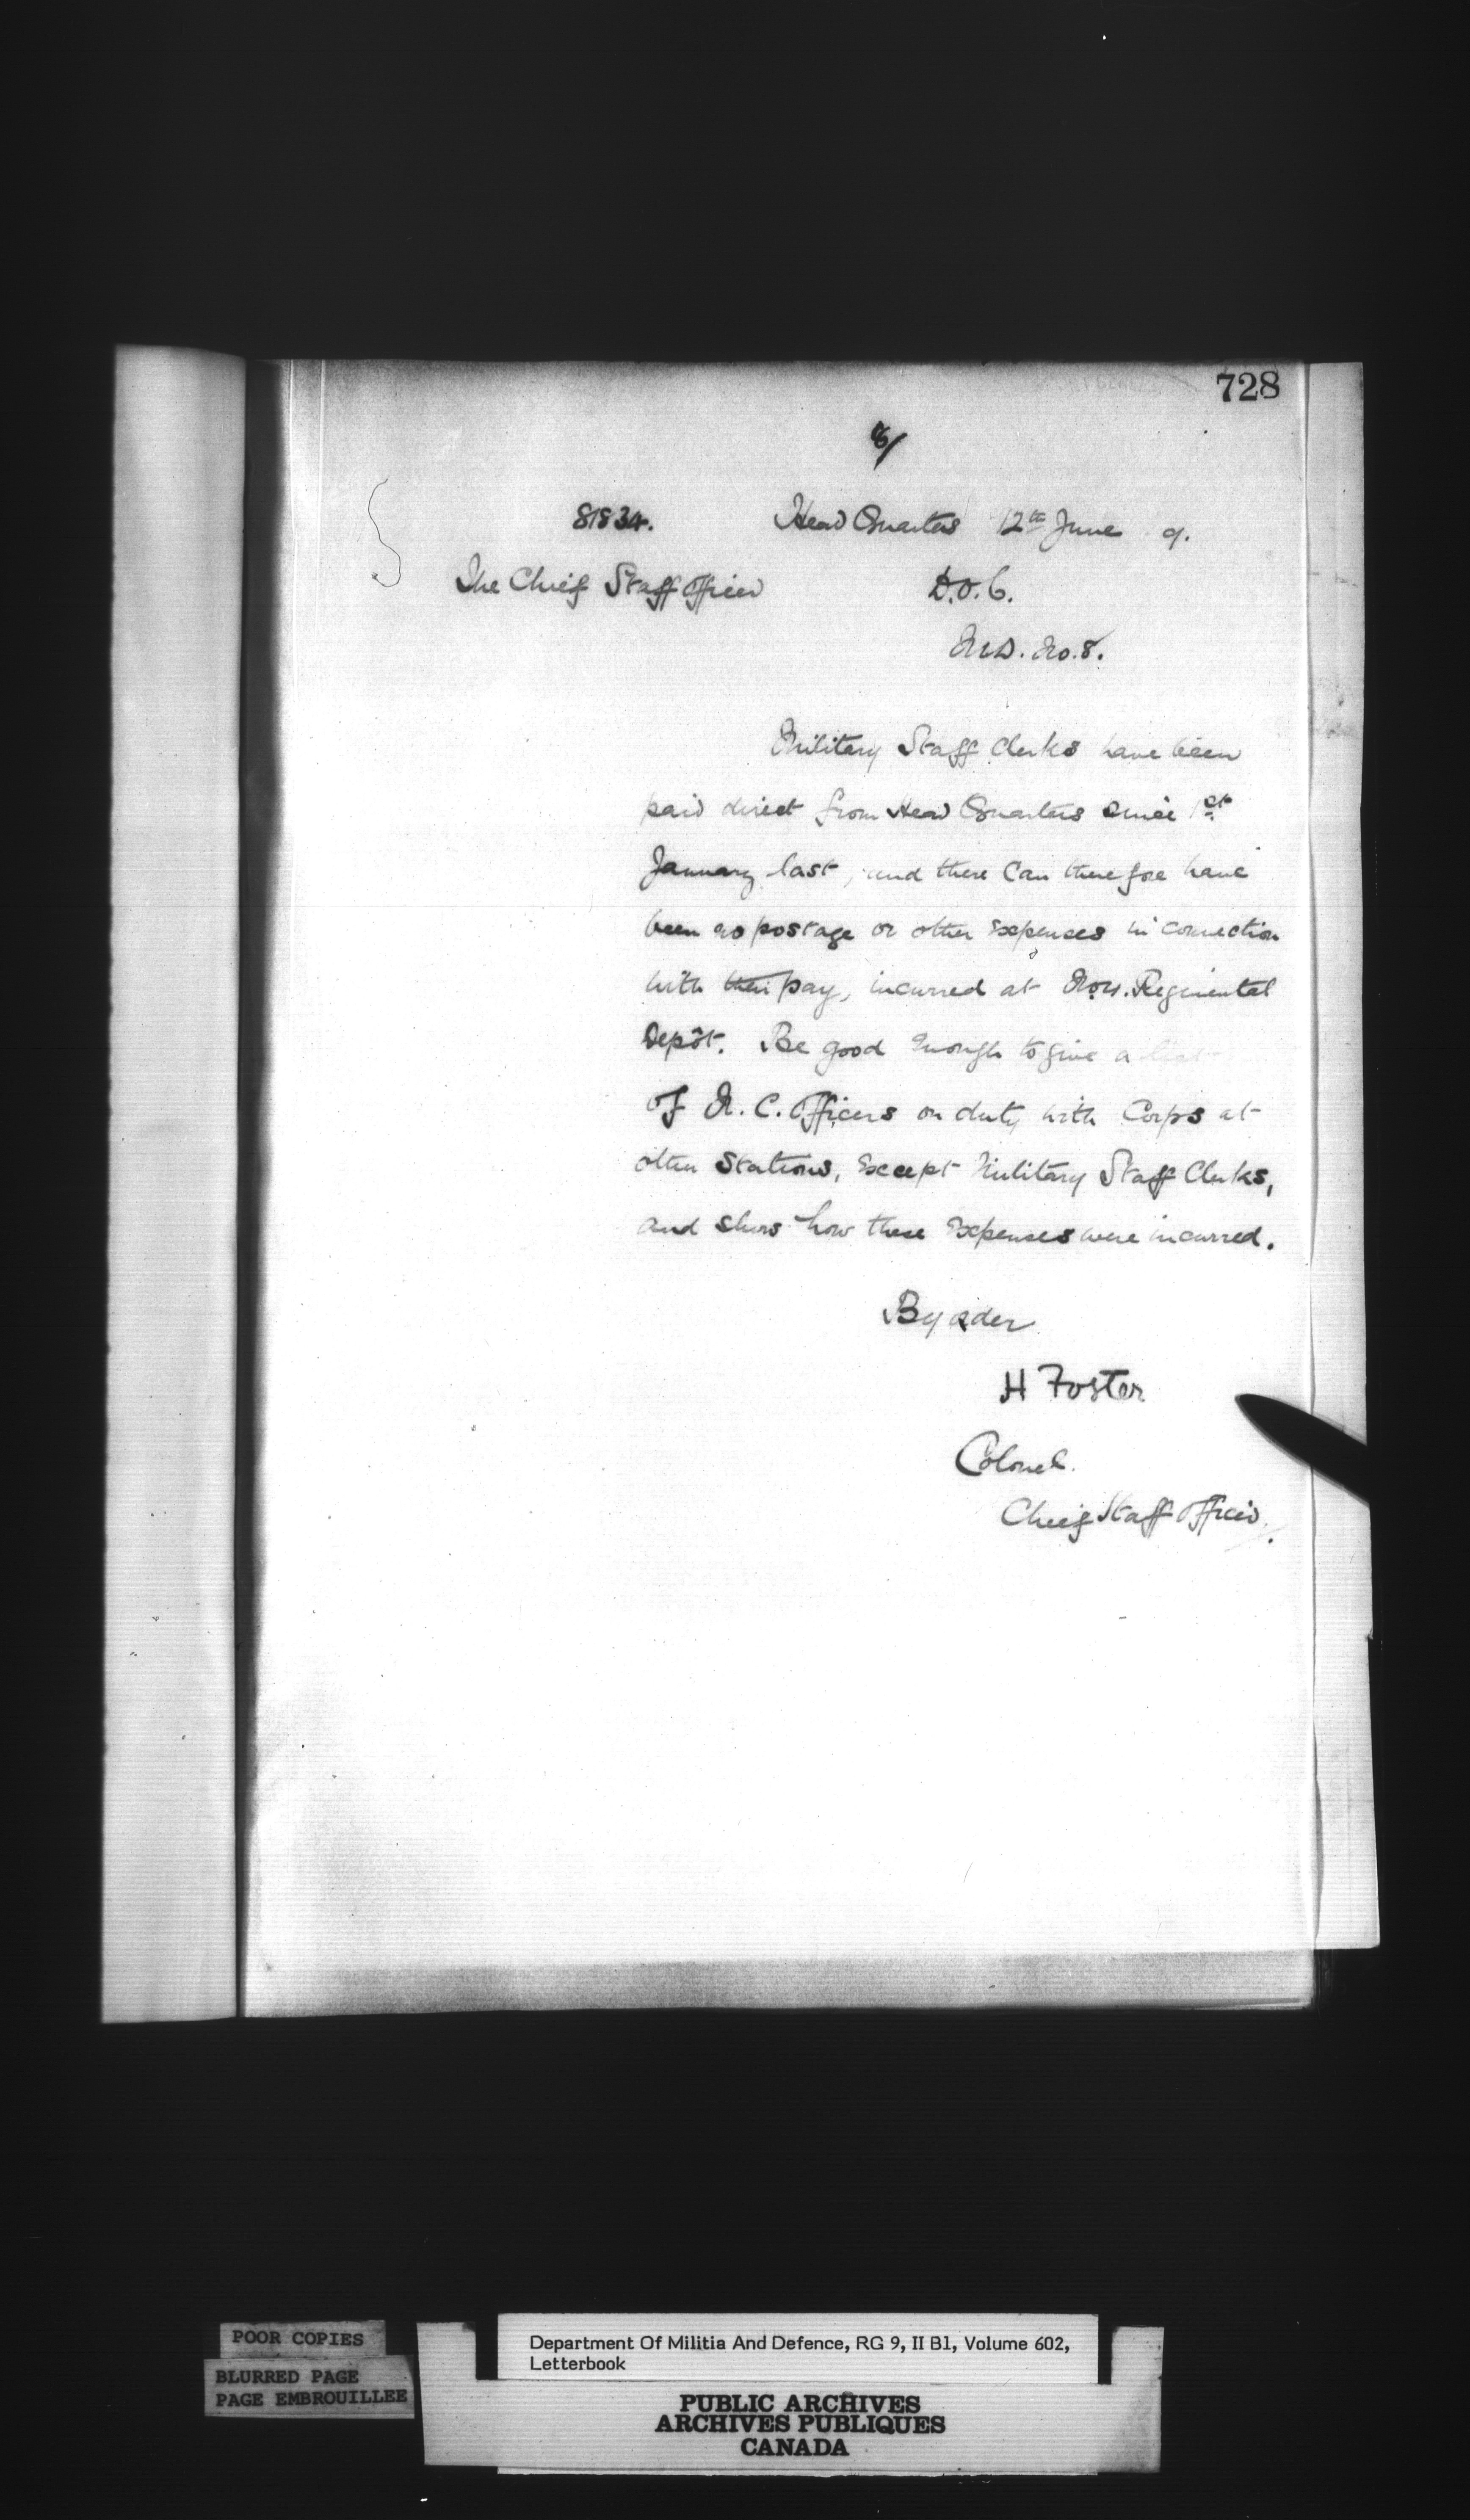 728
8/
81834. Head Quarters 12th June 9.
The Chief Staff Officer
D.O.C.
M.D. No. 8.
Military Staff Clerks have been
paid direct from Head Quarters since 1st
January last, and there can therefore have
been no postage or other expenses in connection
with their pay, incurred at Regimental
Depôt. Be good enough to give a list
of N. C. Officers on duty with Corps at
other Stations, except Military Staff Clerks,
and show how these expenses were incurred.
By order
H Foster
Colonel.
Chief Staff Officer.
POOR COPIES
BLURRED PAGE
PAGE EMBROUILLEE
Department Of Militia And Defence, RG 9, II B1, Volume 602,
Letterbook
PUBLIC ARCHIVES
ARCHIVES PUBLIQUES
CANADA